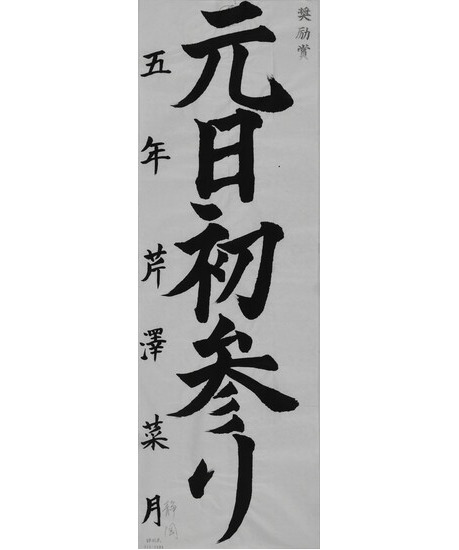 奨励賞
元日初参り
五年 芹澤菜月
静岡